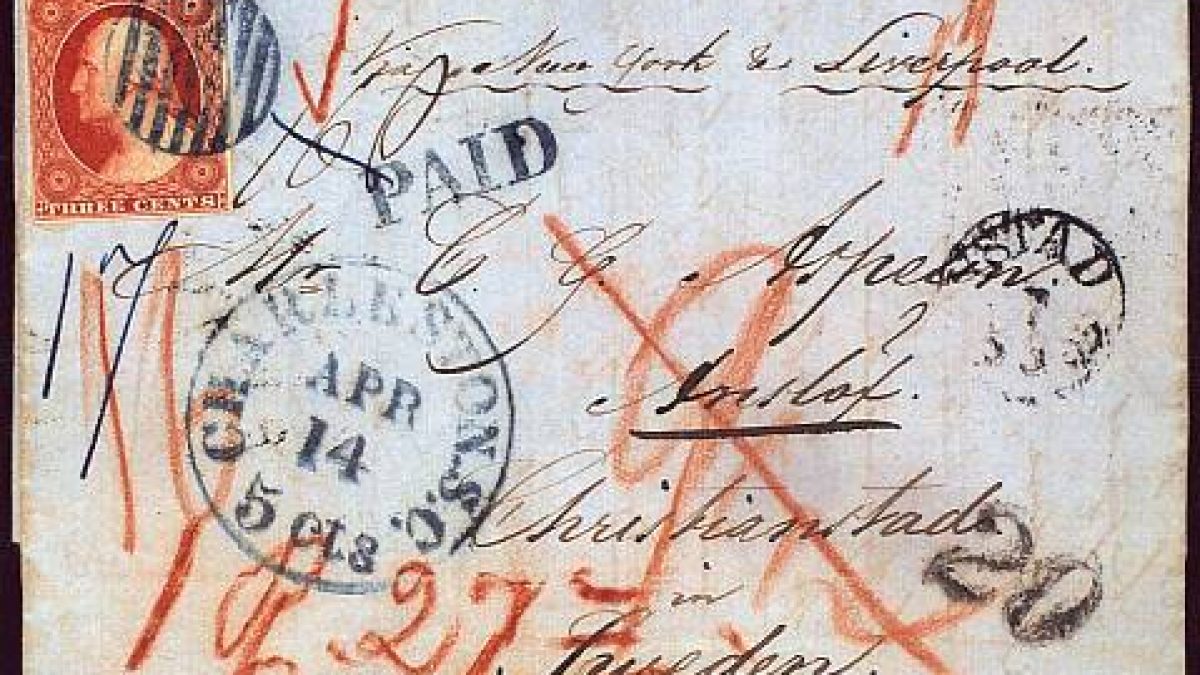 Via New York & Liverpool.
PAID
THREE CENTS
17
Mr C. G. Aspelin.
STAD
CHARLESTON. S.C.
APR
14
5 cts
Christianstad.
20
in
27
Sweden.